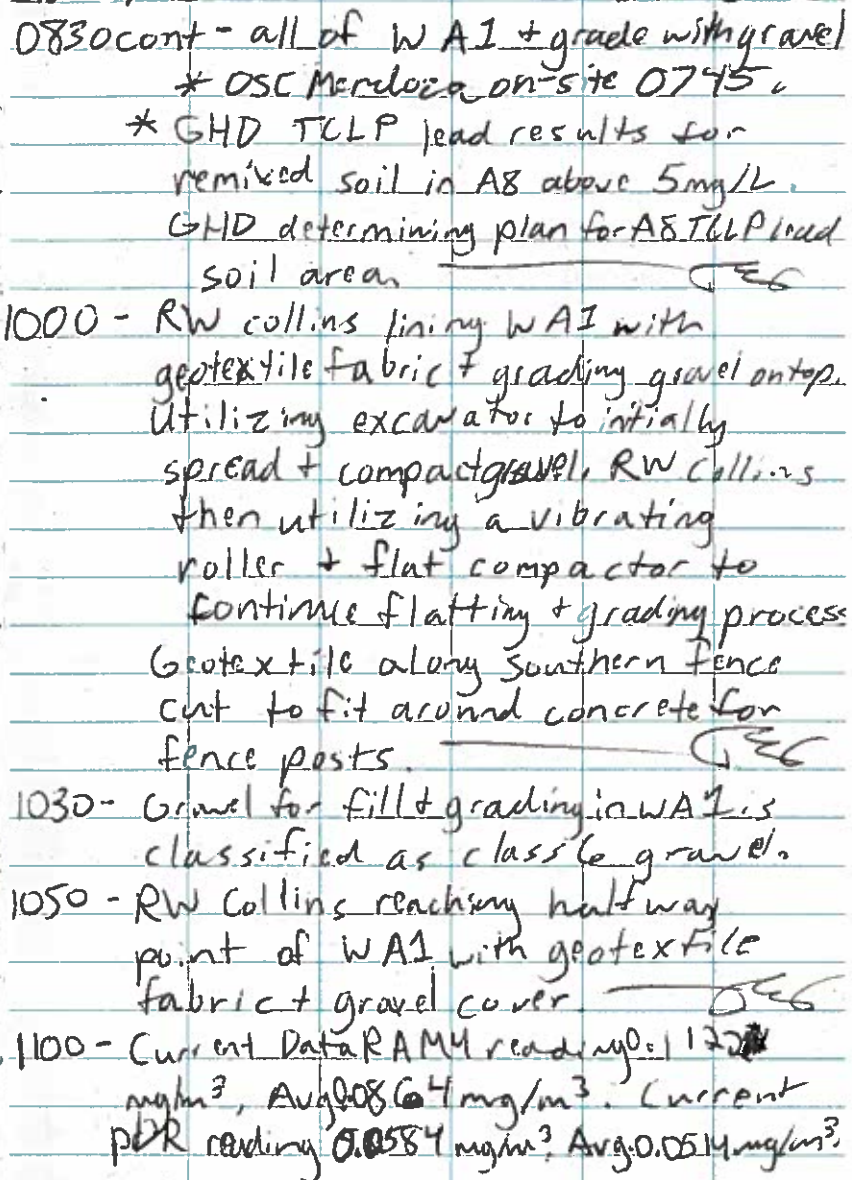 0830cont - all of WA1 + grade with gravel
* OSC Mendoza on-site 0745.
* GHD TCLP lead results for
remixed soil in A8 above 5mg/L.
GHD determining plan for A8 TCLP lead
soil area.
1000 - RW collins lining WA1 with
geotextile fabric + grading gravel on top.
Utilizing excavator to intially
spread + compact gravel. RW Collins
then utilizing a vibrating
roller + flat compactor to
continue flatting + grading process
Geotextile along southern fence
cut to fit around concrete for
fence posts.
1030- Gravel for fill + grading in WA1 is
classified as class 6 gravel.
1050 - RW Collins reaching halfway
point of WA1 with geotextile
fabric + gravel cover.
1100 - Current DataRAM4 reading 0.1122
mg/m³, Avg 0.0864 mg/m³. Current
pDR reading 0.0584 mg/m³. Avg. 0.0514 mg/m³.